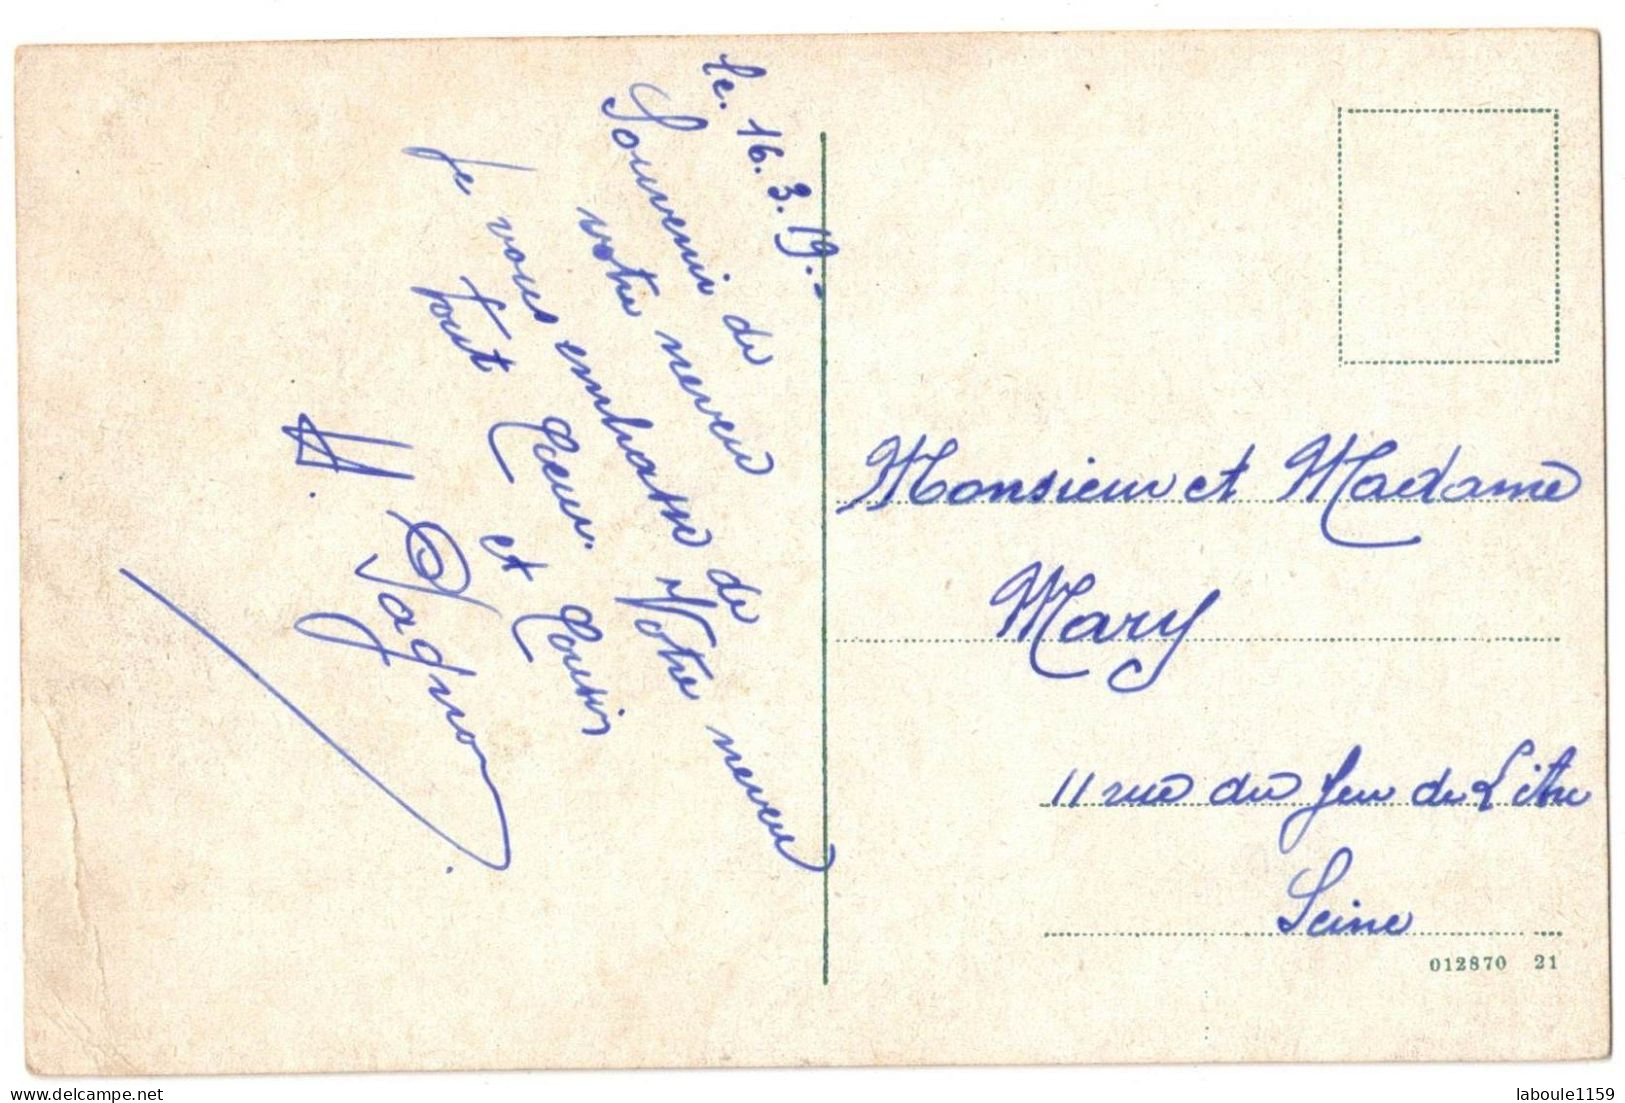 le. 16.3.19.-
Souvenir de
votre neveu
Je vous embrasse de
tout Cœur. Votre neveu
et Cousin
H.
Monsieur et Madame
Mary
11 rue du Jeu de
Seine
012870 21
laboule1159